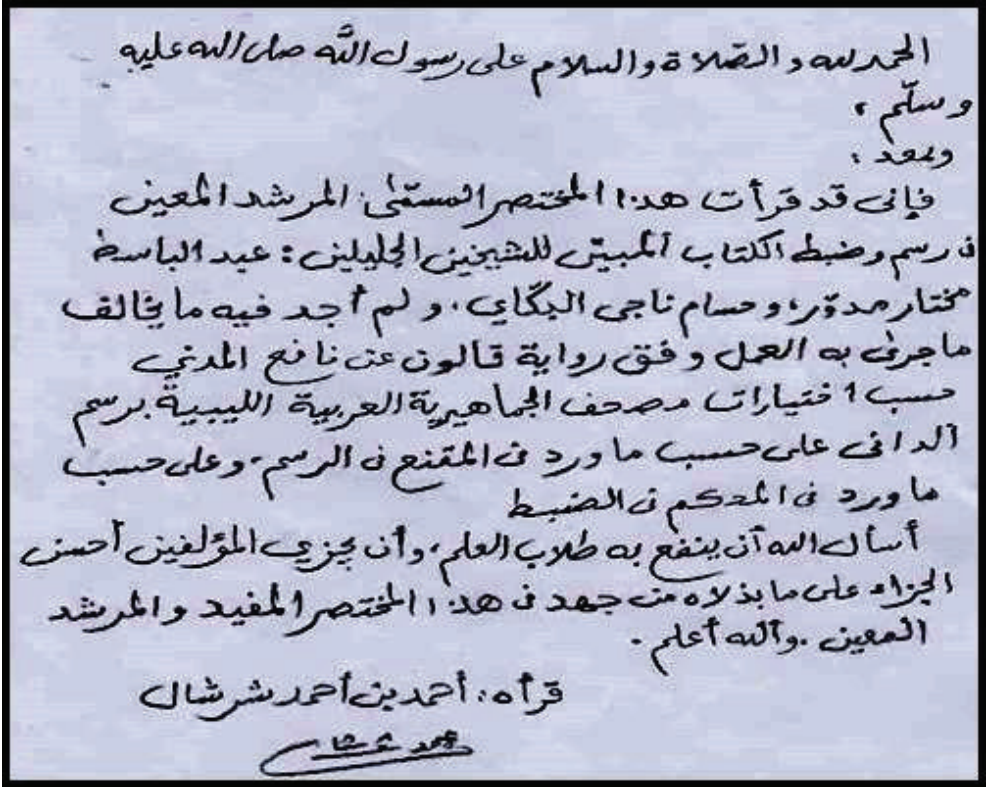 الحمد لله والصّلاة والسلام على رسول اللّه صلى الله عليه
وسلّم ،
وبعد :
فإنى قد قرأت هذا المختصر المسمّى : المرشد المعين
فى رسم وضبط الكتاب المبيّن للشيخين الجليلين : عبد الباسط
مختار مدوّر، وحسام ناجى البكّاي، ولم أجد فيه ما يخالف
ما جرى به العمل وفق رواية قالون عن نافع المدني
حسب اختيارات مصحف الجماهيرية العربية الليبية برسم
الدانى على حسب ما ورد فى المقنع فى الرسم، وعلى حسب
ما ورد فى المحكم فى الضبط
أسأل الله أن ينفع به طلاب العلم، وأن يجزي المؤلفين أحسن
الجزاء على ما بذلاه من جهد فى هذا المختصر المفيد والمرشد
المعين . والله أعلم .
قرأه : أحمد بن أحمد شرشال